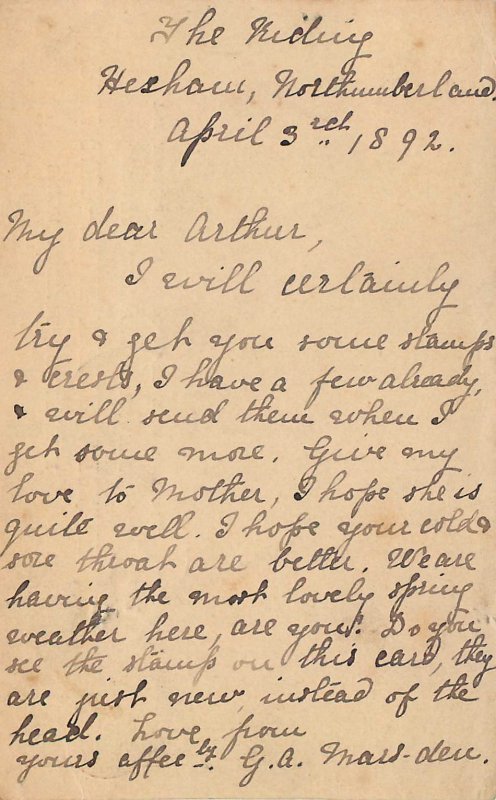 The Riding
Hexham, Northumberland.
April 3rd, 1892.
My dear Arthur,
I will certainly
try & get you some stamps
& crests, I have a few already,
& will send them when I
get some more. Give my
love to Mother, I hope she is
quite well. I hope your cold &
sore throat are better. We are
having the most lovely spring
weather here, are you? Do you
see the stamp on this card, they
are just new, instead of the
head. Love from
yours affecly. G.A. Mars-den.